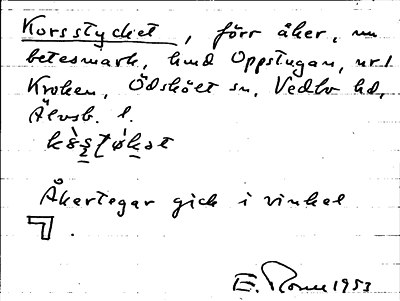 Korsstycket, förr åker, nu
betesmark, hmd Oppstugan, nr 1
Kroken, Ödskölt sn, Vedbo hd,
Älvsb. l.
Åkertegar gick i vinkel
E. 1953